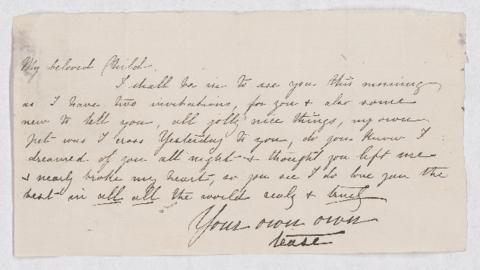 My beloved Child.
I shall be in to see you this morning
as I have two invitations, for you & also some
new to tell you, all jolly nice things, my own
Yet was I cross Yesterday to you, do you know I
dreamed of you all night & thought you left me
& nearly broke my heart, so you see I do love you the
best in all all the world realy & truly
Your own own
tease